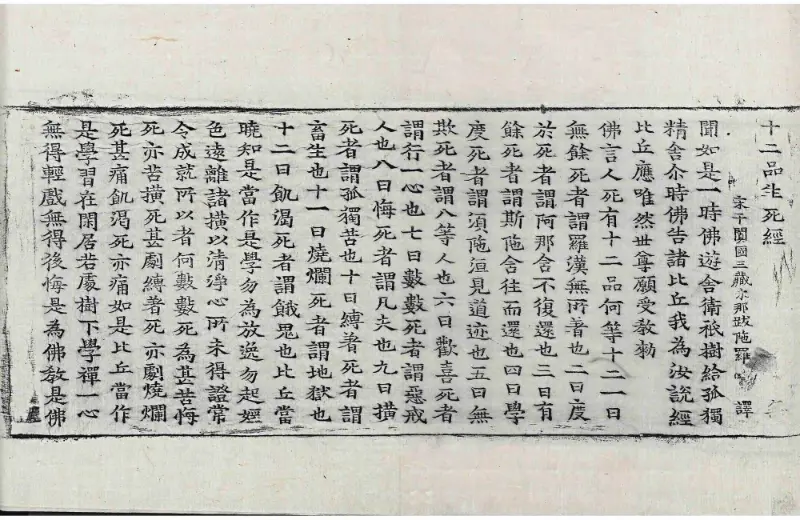 十二品生死經
宋于闐國三藏求那跋陁羅 譯
聞如是一時佛遊舍衛祇樹給孤獨
精舍尒時佛告諸比丘我為汝說經
比丘應唯然世尊願受教勑
佛言人死有十二品何等十二一曰
無餘死者謂羅漢無所著也二曰度
於死者謂阿那含不復還也三曰有
餘死者謂斯陁含往而還也四曰學
度死者謂湏陁洹見道迹也五曰無
欺死者謂八等人也六曰歡喜死者
謂行一心也七曰數數死者謂惡戒
人也八曰悔死者謂凡夫也九曰撗
死者謂孤獨苦也十曰縛著死者謂
畜生也十一曰燒爛死者謂地獄也
十二曰飢渴死者謂餓鬼也比丘當
曉知是當作是學勿為放逸勿起婬
色遠離諸撗以清淨心所未得證常
令成就所以者何數數死為甚苦悔
死亦苦撗死甚劇縛著死亦劇燒爛
死甚痛飢渴死亦痛如是比丘當作
是學習在閑居若處樹下學禪一心
無得輕戲無得後悔是為佛教是佛